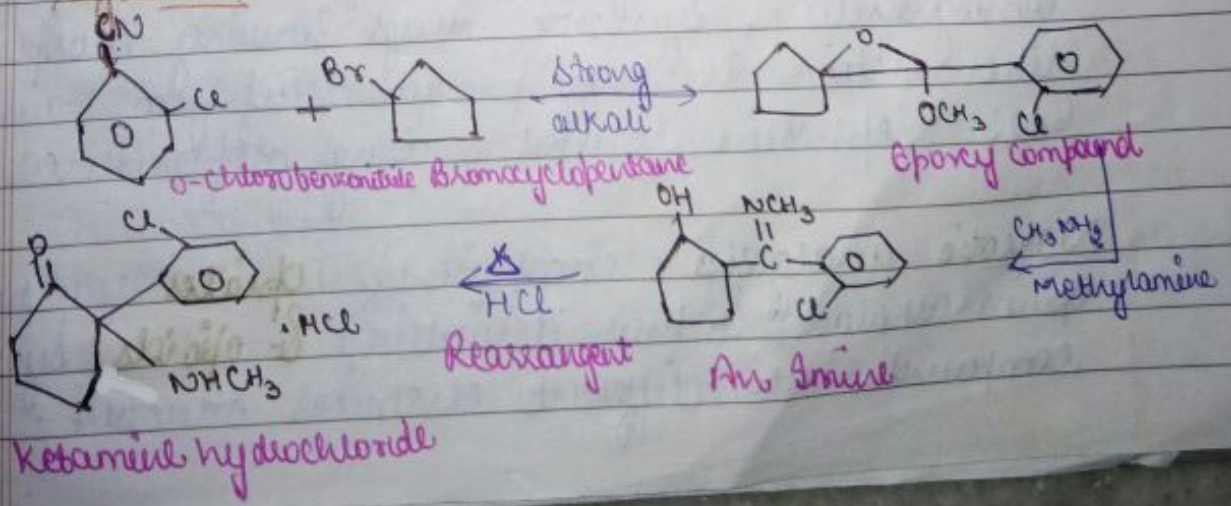 CN
Cl
Br
+
Strong
alkali
O
OCH3
Cl
o-Chlorobenzonitrile Bromocyclopentane
Epoxy Compound
OH
NCH3
||
C
Cl
CH3NH2
Methylamine
An Imine
Δ
HCl
Rearrangent
O
Cl
NHCH3
. HCl
Ketamine hydrochloride